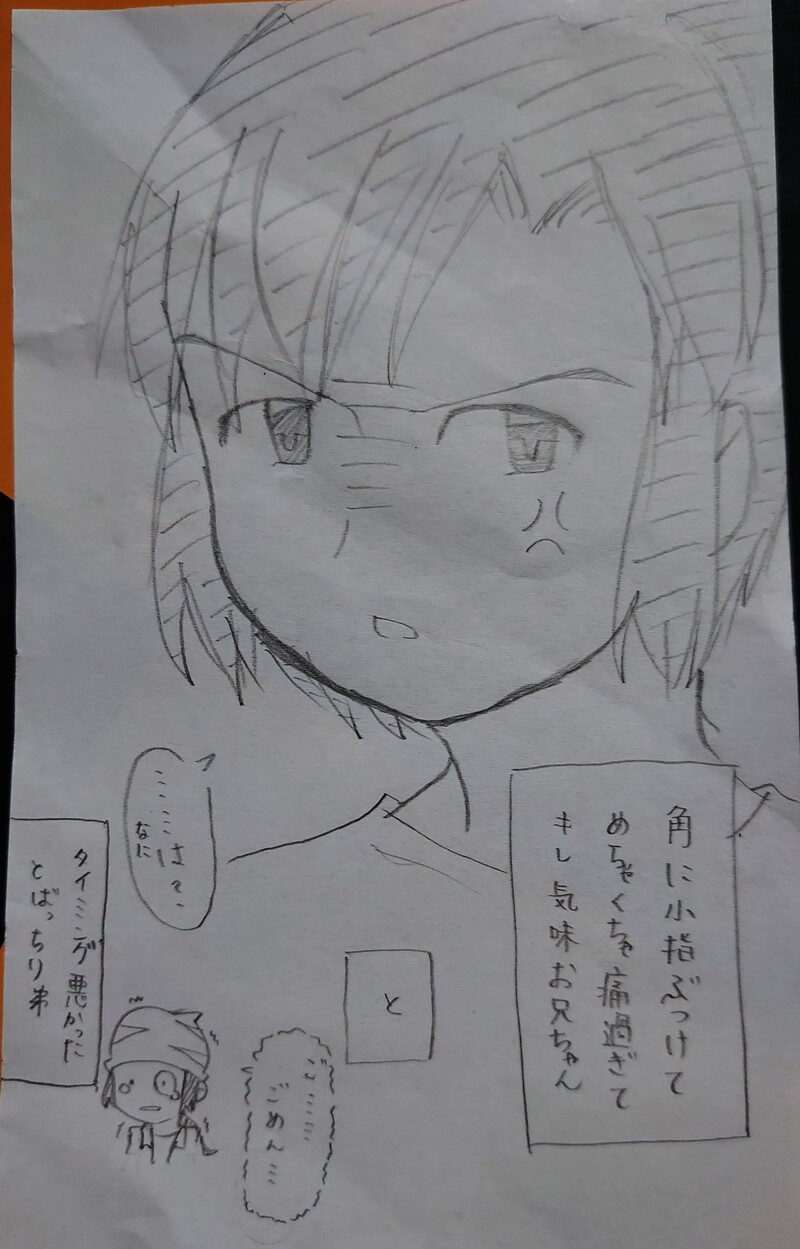 角に小指ぶつけて
めちゃくちゃ痛過ぎて
キレ気味お兄ちゃん
と
……は？
なに
ご……
ごめん……
タイミング悪かった
とばっちり弟